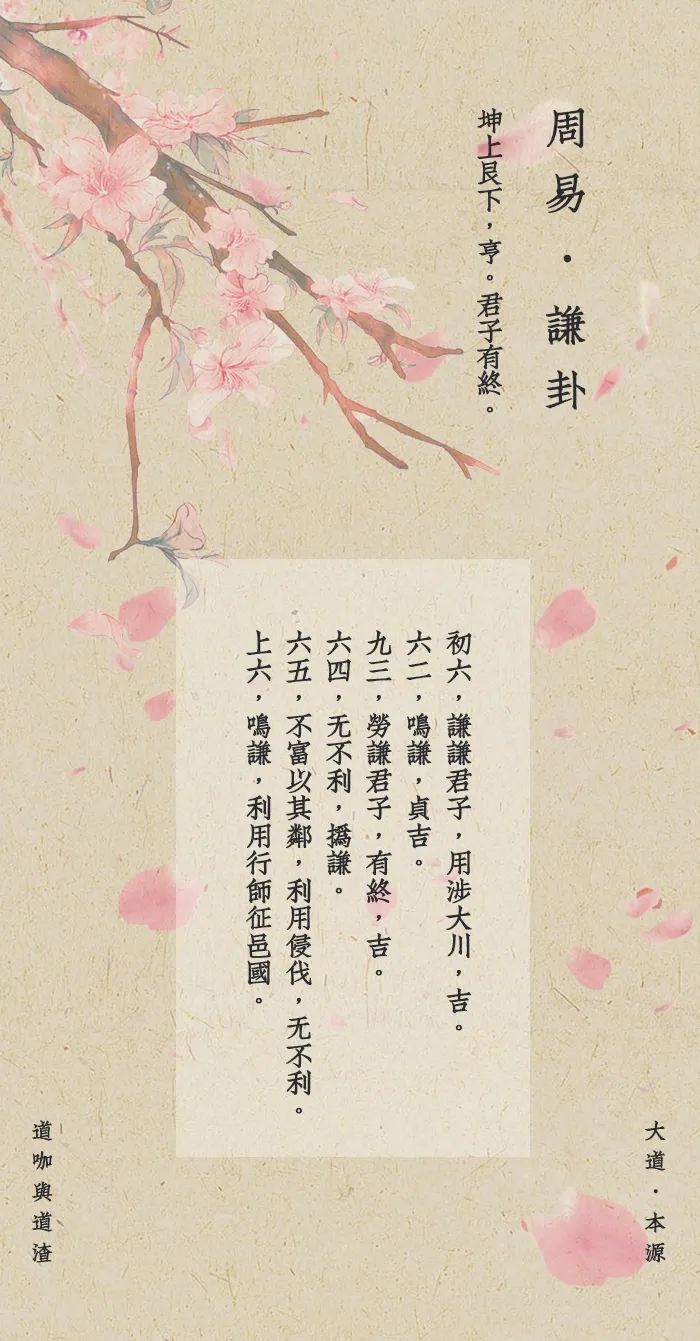 周易·謙卦
坤上艮下，亨。君子有終。
初六，謙謙君子，用涉大川，吉。
六二，鳴謙，貞吉。
九三，勞謙君子，有終，吉。
六四，无不利，撝謙。
六五，不富以其鄰，利用侵伐，无不利。
上六，鳴謙，利用行師征邑國。
大道·本源
道咖與道渣